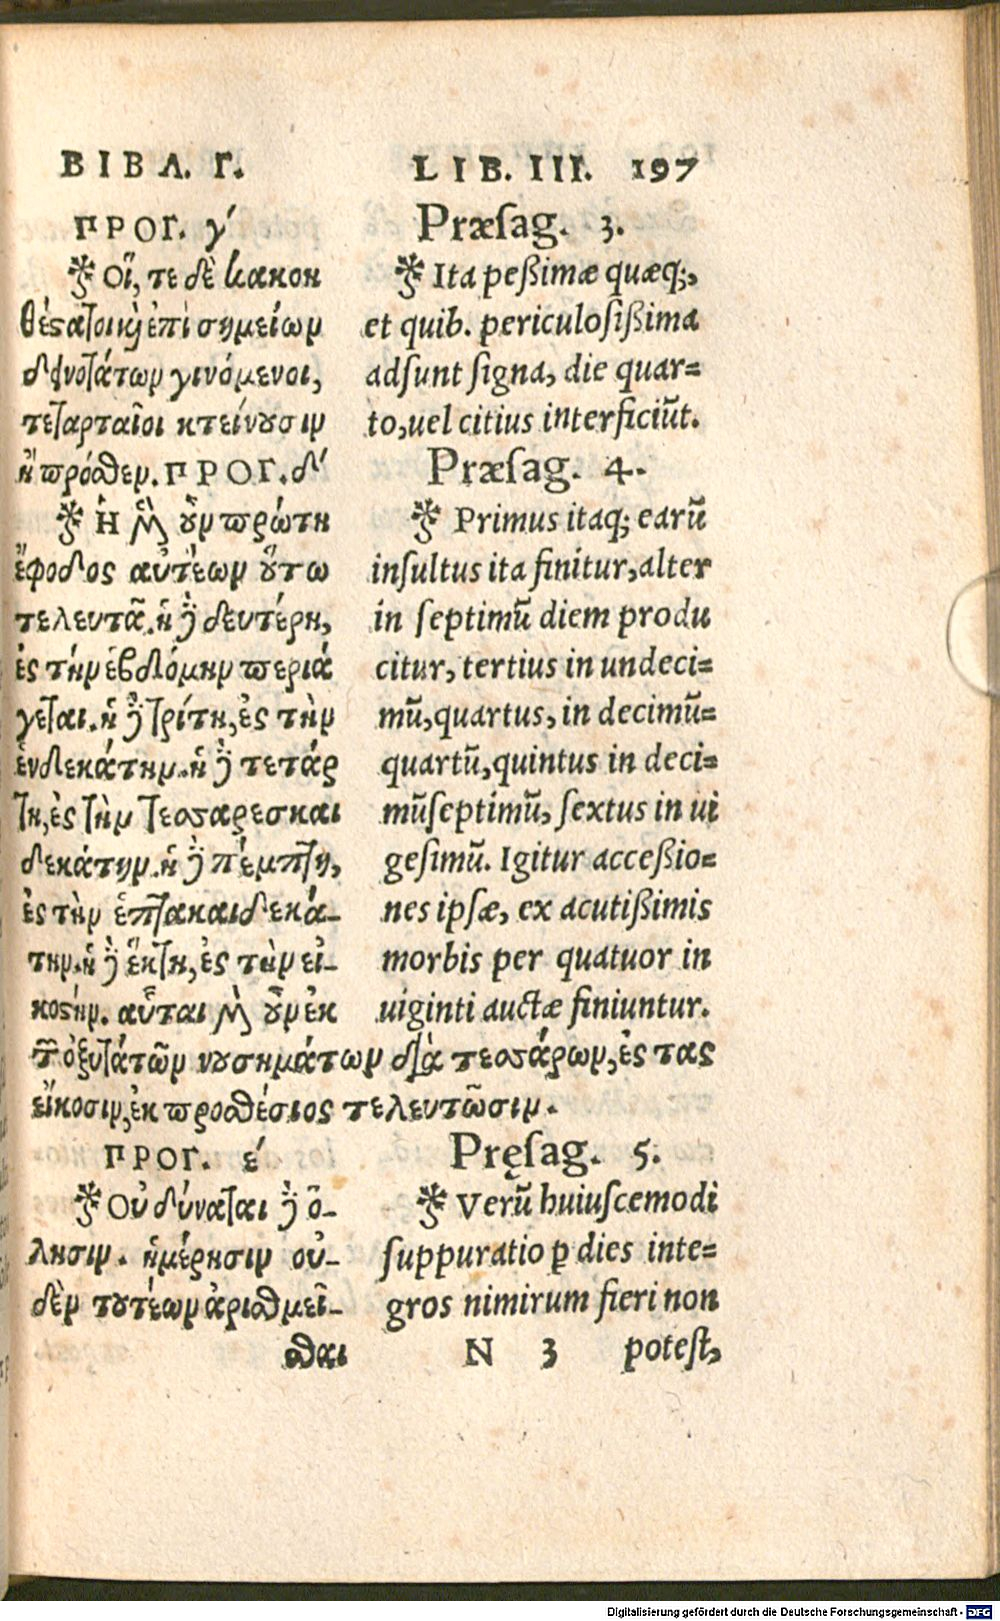 ΒΙΒΛ. Γ.
ΠΡΟΓ. γ´
Οἵ, τε δὲ κακον
θέςατοι κỳ ἐπὶ σημείων
δεινοτάτων γινόμενοι,
τεταρταῖοι κτείνουσιν
ἢ πρόσθεν. ΠΡΟΓ. δ´
Ἡ μὲν οὖν πρώτη
ἔφοδος αὐτέων οὕτω
τελευτᾶ. ἡ δὲ δευτέρη,
ἐς τὴν ἑβδόμην περιά
γεται. ἡ δὲ τρίτη, ἐς τὴν
ἑνδεκάτην. ἡ δὲ τετάρ
τη, ἐς τὴν τεσσαρεσκαι
δεκάτην. ἡ δὲ πέμπτη,
ἐς τὴν ἑπτακαιδεκά-
την. ἡ δὲ ἕκτη, ἐς τὴν εἰ-
κοςήν. αὗται μὲν οὖν ἐκ
τῶν ὀξυτάτων νουσημάτων διὰ τεσσάρων, ἐς τας
εἴκοσιν, ἐκ προσθέσιος τελευτῶσιν.
ΠΡΟΓ. έ
Οὐ δύναται δὲ ὅ-
λησιν. ἡμέρησιν οὐ-
δὲν τουτέων ἀριθμεῖ-
σθαι
LIB. III. 197
Præſag. 3.
Ita peßimæ quæq;,
et quib. periculoſißima
adſunt ſigna, die quar=
to, uel citius interficiūt.
Præſag. 4.
Primus itaq; earū
inſultus ita finitur, alter
in ſeptimū diem produ
citur, tertius in undeci=
mū, quartus, in decimū=
quartū, quintus in deci=
mūſeptimū, ſextus in ui
geſimū. Igitur acceßio=
nes ipſæ, ex acutißimis
morbis per quatuor in
uiginti auctæ finiuntur.
Pręſag. 5.
Verū huiuſcemodi
ſuppuratio ꝑ dies inte=
gros nimirum fieri non
N 3 poteſt,
Digitalisierung gefördert durch die Deutsche Forschungsgemeinschaft - DFG